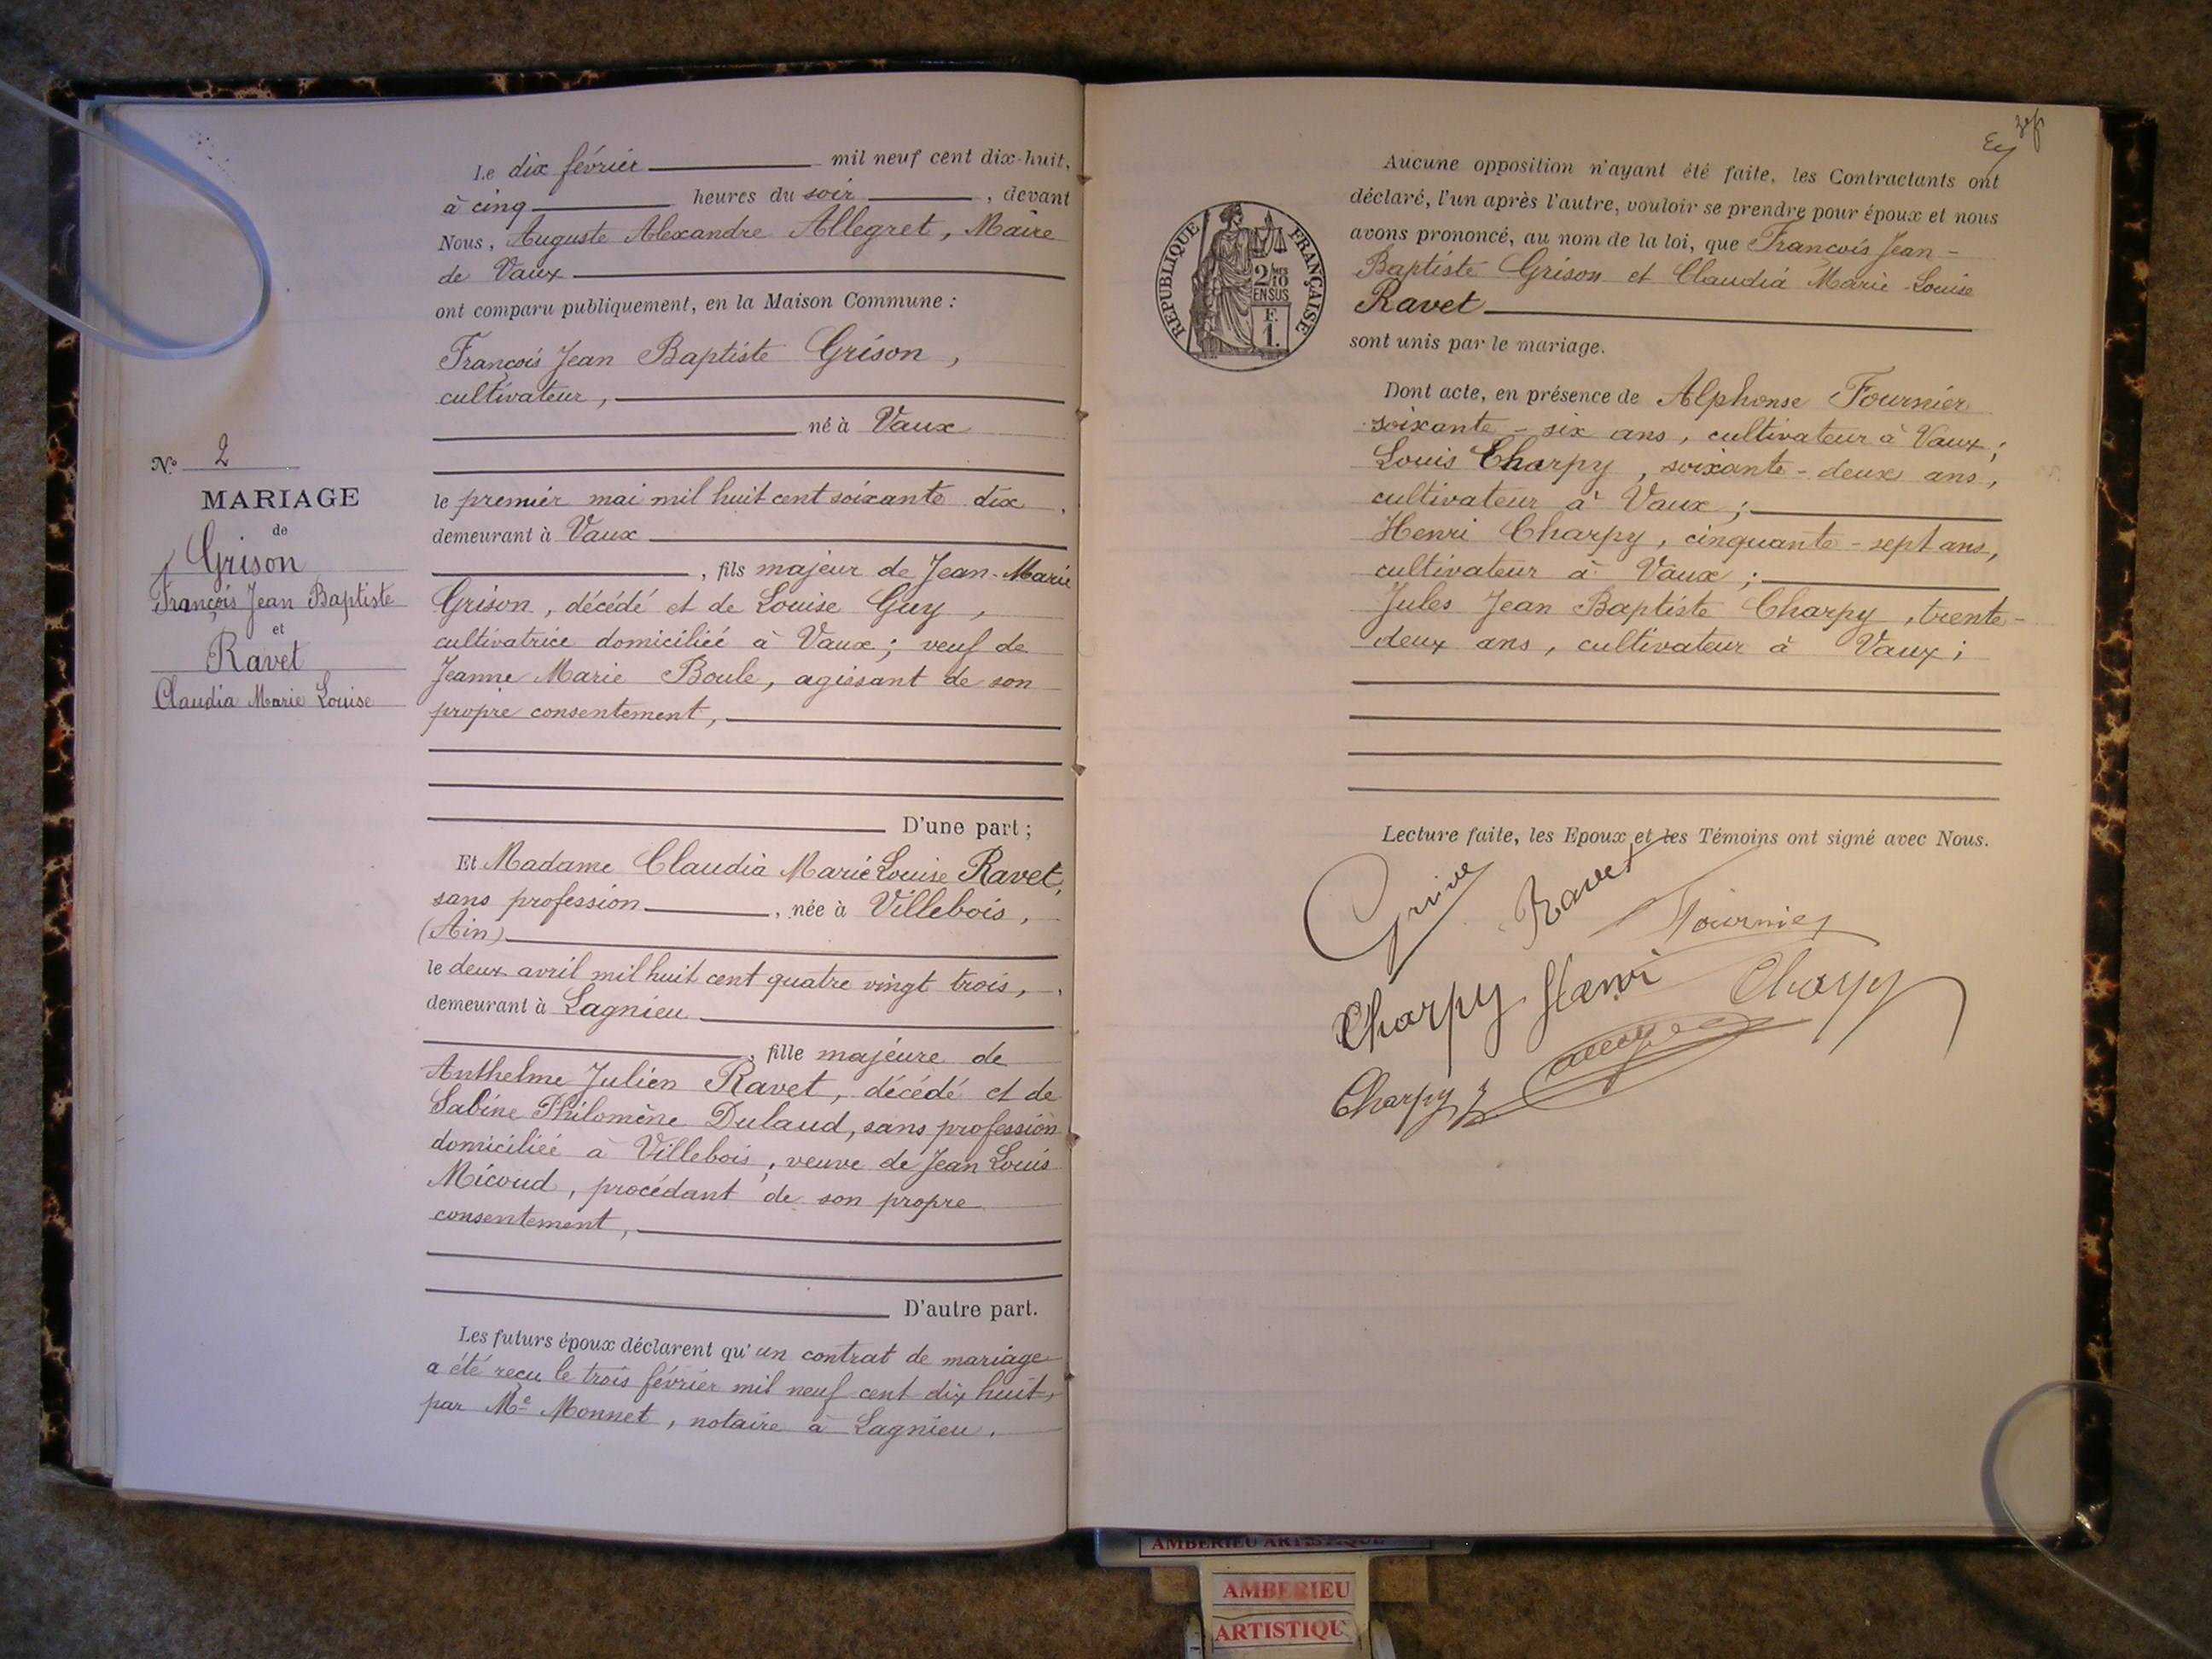 Le dix février mil neuf cent dix-huit,
à cinq heures du soir, devant
Nous, Auguste Alexandre Allegret, Maire
de Vaux
ont comparu publiquement, en la Maison Commune :
François Jean Baptiste Grison,
cultivateur,
né à Vaux
le premier mai mil huit cent soixante dix,
demeurant à Vaux
, fils majeur de Jean-Marie
Grison, décédé et de Louise Guy,
cultivatrice domiciliée à Vaux; veuf de
Jeanne Marie Boule, agissant de son
propre consentement,
D'une part ;
Et Madame Claudia Marie Louise Ravet,
sans profession, née à Villebois,
(Ain)
le deux avril mil huit cent quatre vingt trois,
demeurant à Lagnieu
, fille majeure de
Anthelme Julien Ravet, décédé et de
Sabine Philomène Dulaud, sans profession
domiciliée à Villebois, veuve de Jean Louis
Micoud, procédant de son propre
consentement,
D'autre part.
Les futurs époux déclarent qu'un contrat de mariage
a été reçu le trois février mil neuf cent dix huit,
par Me Monnet, notaire à Lagnieu.
N° 2
MARIAGE
de
Grison
François Jean Baptiste
et
Ravet
Claudia Marie Louise
Aucune opposition n'ayant été faite, les Contractants ont
déclaré, l'un après l'autre, vouloir se prendre pour époux et nous
avons prononcé, au nom de la loi, que François Jean-
Baptiste Grison et Claudia Marie-Louise
Ravet
sont unis par le mariage.
Dont acte, en présence de Alphonse Fournier
soixante-six ans, cultivateur à Vaux;
Louis Charpy, soixante-deux ans,
cultivateur à Vaux;
Henri Charpy, cinquante-sept ans,
cultivateur à Vaux;
Jules Jean Baptiste Charpy, trente-
deux ans, cultivateur à Vaux;
Lecture faite, les Epoux et les Témoins ont signé avec Nous.
Ravet
Fournier
Charpy Henri
Charpy
Charpy J
RÉPUBLIQUE FRANÇAISE
2/10
EN SUS
F.
1.
AMBERIEU ARTISTIQUE
AMBERIEU
ARTISTIQU